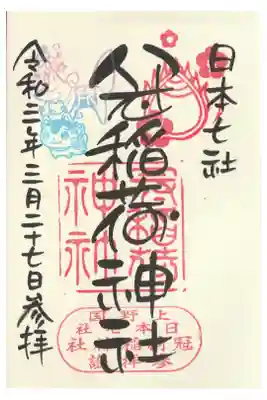 日本七社
冠稲荷神社
令和三年三月二十七日参拝
冠稲荷
神社
上野国
日本七社
冠稲荷神社